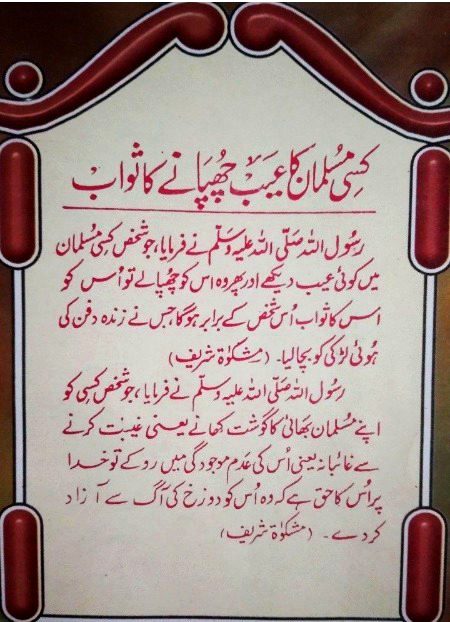 کسی مسلمان کا عیب چھپانے کا ثواب
رسول اللہ صلی اللہ علیہ وسلم نے فرمایا، جو شخص کسی مسلمان
میں کوئی عیب دیکھے اور پھر وہ اس کو چھپالے تو اُس کو
اس کا ثواب اُس شخص کے برابر ہوگا، جس نے زندہ دفن کی
ہوئی لڑکی کو بچالیا۔ (مشکوٰۃ شریف)
رسول اللہ صلی اللہ علیہ وسلم نے فرمایا، جو شخص کسی کو
اپنے مسلمان بھائی کا گوشت کھانے یعنی غیبت کرنے
سے غائبانہ یعنی اُس کی عدم موجودگی میں روکے تو خدا
پر اُس کا حق ہے کہ وہ اُس کو دوزخ کی آگ سے آزاد
کردے۔ (مشکوٰۃ شریف)